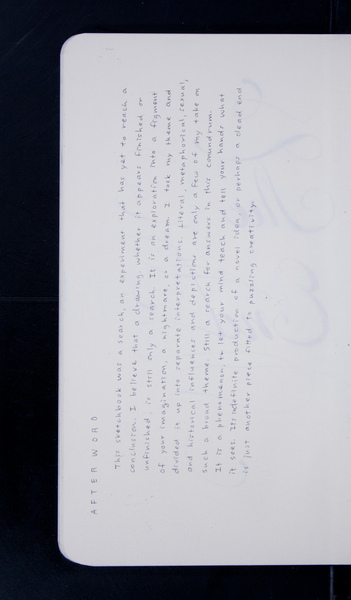 AFTER WORD
This sketchbook was a search, an experiment that has yet to reach a
conclusion. I believe that a drawing, whether it appears finished or
unfinished, is still only a search. It is an exploration into a figment
of your imagination, a nightmare, or a dream. I took my theme and
divided it up into separate interpretations. Literal, metaphorical, sexual,
and historical influences and depictions are only a few of my take on
such a broad theme. Still a search for answers in this conundrum.
It is a phenomenon, to let your mind teach and tell your hands what
it sees. Its indefinite production of a novel idea, or perhaps a dead end
is just another piece fitted to puzzling creativity.